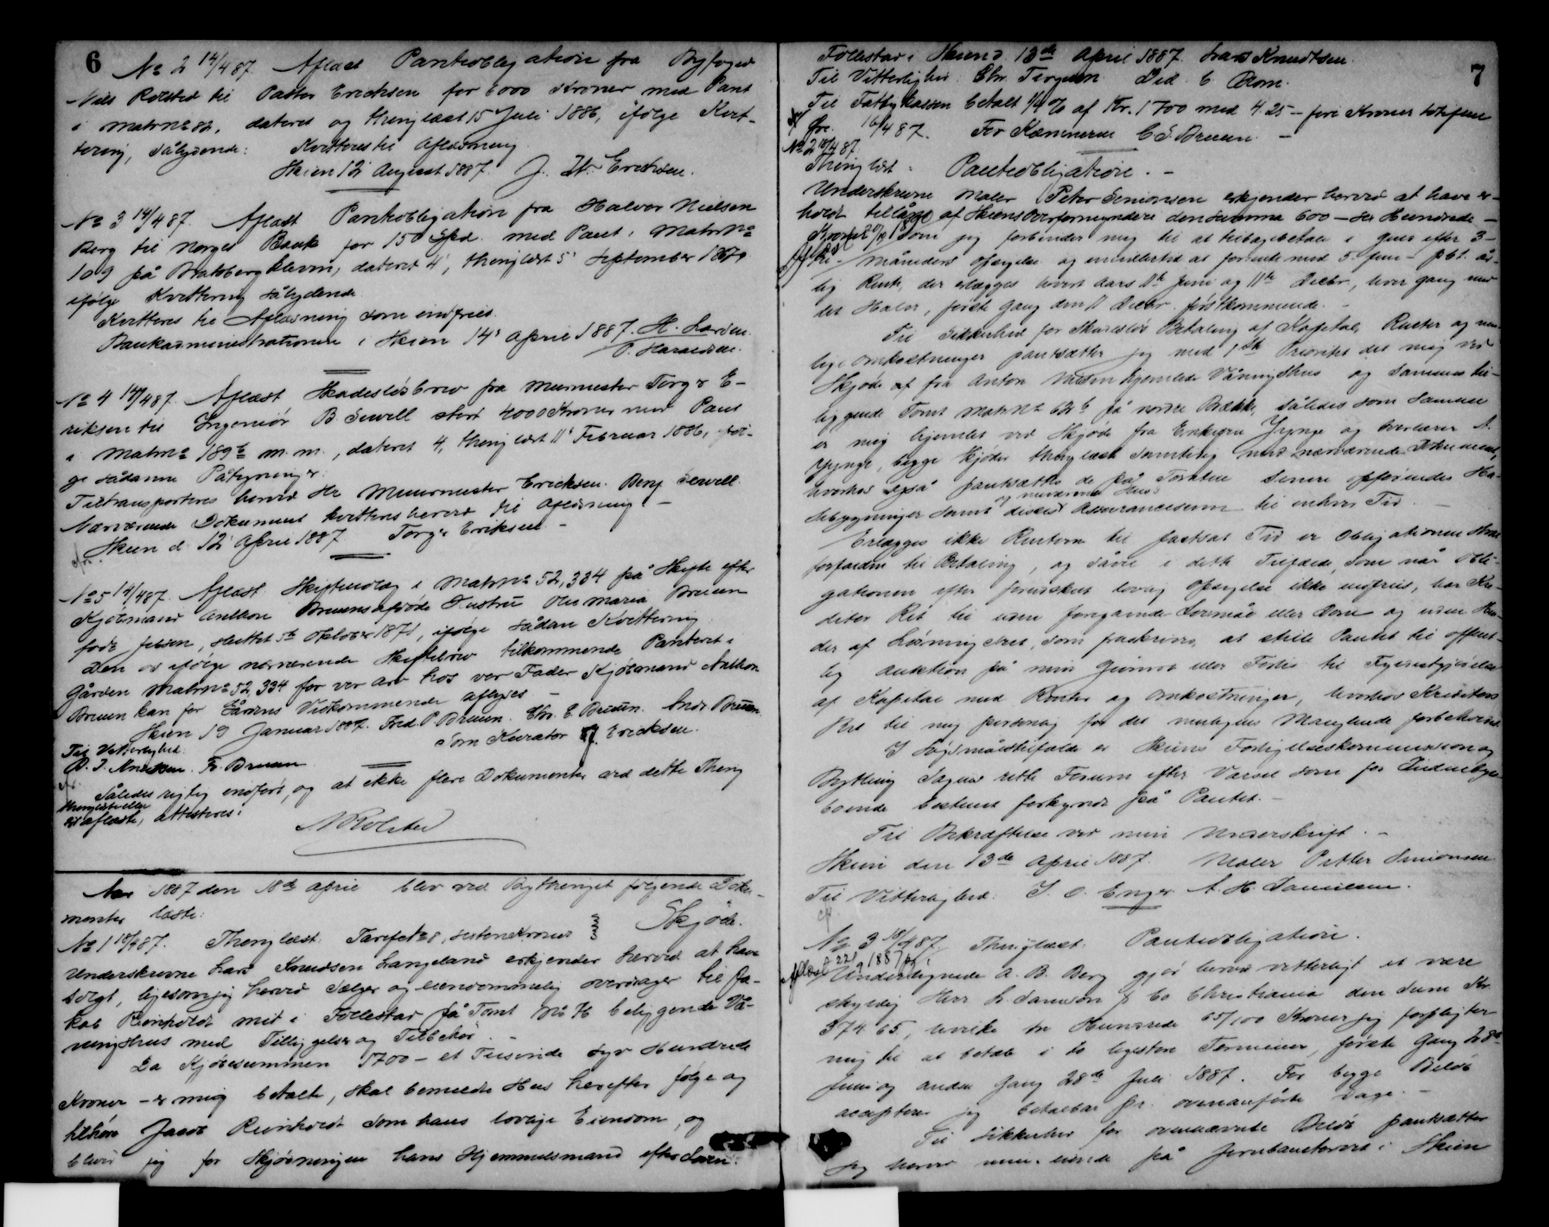 6
No 2 14/4 87. Aflæst Pantobligation fra Byfoged
Niels Rolsted til Pastor Ericksen for 6000 Kroner med Pant
i Matr No 82, dateret og thinglæst 15 Juli 1886, ifølge Kvit-
tering, sålydende: Kvitteres til Aflæsning
Skien 12 August 1887. J. Ericksen.
No 3 14/4 87. Aflæst Pantobligation fra Halvor Nielsen
Berg til Norges Bank for 150 Spd. med Pant i Matr No
109 på Bratsbergkleven, dateret 4', thinglæst 5' September 1870
ifølge Kvittering sålydende
Kvitteres til Aflæsning som indfriet.
Bankadministrationen i Skien 14' April 1887. H. Larsen.
No 4 14/4 87. Aflæst Skadesløsbrev fra Murmester Torgr E-
riksen til Ingeniør B Sewell stort 4000 Kroner med Pant
i Matr No 189b m. m., dateret 4, thinglæst 11' Februar 1886, iføl-
ge sådanne Påtegninger:
Tiltransporteres herved Hr Muurmester Ericksen. Benj Sewell
Nærværende Dokument kvitteres herved til Aflæsning
Skien d. 12' April 1887 Torgr Eriksen -
No 5 14/4 87. Aflæst Skifteudlæg i Matr No 52, 334 på Skifte efter
Kjøbmand Anthon Bruuns afdøde Hustru Maria Bruun
født Jebsen, sluttet 5te Oktober 1871, ifølge sådan Kvittering
Den os ifølge nærværende Skiftebrev tilkommende Panteret i
Gården Matr No 52, 334 for vor Arv hos vor Fader Kjøbmand Anthon
Bruun kan for Gårdens Vedkommende aflyses
Skien 19 Januar 1887. Fred P Bruun. Chr. E Bruun. Andr Bruun
Som Kurator Ericksen.
Til Vitterlighed:
Fr. Bruun
Således rigtig indført, og at ikke flere Dokumenter ved dette Thing
thinglæstes eller
aflæste, attesteres:
NRolsted
Aar 1887 den 18de April blev ved Bythinget følgende Doku-
menter læste:
No 1 18/4 87. Thinglæst. Skjøde.
Underskrevne Lars Knudsen Langeland erkjender herved at have
solgt, ligesom jeg herved sælger og eiendommelig overdrager til Ja-
kob Reinholdt mit i Follestad på Tomt No beliggende Vå-
ningshus med Tilliggelse og Tilbehør
Da Kjøbesummen 1700 - et Tusinde syv Hundrede
Kroner - er mig betalt, skal bemeldte Hus herefter følge og
tilhøre Jacob Reinholdt som hans lovlige Eiendom, og
bliver jeg for Skjødningen hans Hjemmelsmand efter Loven.
7
Follestad i Skien d. 13de April 1887 Lars Knudtsen
Til Vitterlighed: Chr. Ded. C Blom.
Til Fattigkassen betalt 1/4 % af Kr. 1700 med 4.25 - fire Kroner totifem
Øre. 16/4 87. For Kæmneren C E Bruun -
No 2 18/4 87.
Thinglæst. Pantobligation. -
Underskrevne Maler Petter Simonsen erkjender herved at have er-
holdt tillåns af Skiens Overformynderi den Summa 600 - sex Hundrede -
Kroner som jeg forbinder mig til at tilbagebetale i Guld efter 3 -
tre - Måneders Opsigelse og imidlertid at forrente med 5 - fem - pCt. år-
lig Rente, der erlægges hvert Aars 11te Juni og 11te Decbr, hver Gang med
det Halve, første Gang den 11 Decbr. førstkommende. -
Til Sikkerhed for skadesløs Betaling af Kapital, Renter og mu-
lige Omkostninger pantsætter jeg med 1ste Prioritet det mig ved
Skjøde af fra Anton Nielsen hjemlede Våningshus og sammes til-
liggende Tomt Matr No 62b på nordre Brække, således som samme
er mig hjemlet ved Skjøde fra Enkefru Synge og
Synge, begge Skjøder thinglæst samtidig med nærværende Dokument,
hvorhos også pantsættes de på Tomten senere opførendes
bebygninger samt disses Assurancesum til enhver Tid. -
og nuværende Huse
Erlægges ikke Renterne til fastsat Tid er Obligationen straks
forfalden til Betaling, og såvel i dette Tilfælde, som når Obli-
gationen efter foranskreven lovlig Opsigelse ikke indfries, har Kre-
ditor Ret til uden foregående Søgsmål eller Dom og uden Hin-
der af Løsningsret, som fraskrives, at stille Pantet til offent-
lig Auktion på min Gevinst eller Forlis til Fyldestgjørelse
af Kapital med Renter og Omkostninger, hvorhos Kreditors
Ret til mig personlig for det muligens Manglende forbeholdes
I Søgsmålstilfælde er Skiens Forligelseskommission og
Bything Sagens rette Forum efter Varsel som for Indenbys-
boende bestemt forkyndt på Pantet. -
Til Bekræftelse ved min Underskrift. -
Skien den 13de April 1887. Maler Petter Simonsen
Til Vitterlighed: S. O. Enger. A. H. Danielsen.
No 3 18/4 87. Thinglæst Pantobligation.
Aflæst 22/9 1887
Undertegnede A. B. Berg gjør herved vitterligt at være
skyldig Herr L Samson & Co Christiania den Sum Kr
374 65, hvilke tre Hundrede 65/100 Kroner jeg forpligter
mig til at betale i to ligestore Terminer, første Gang 28de
Juni og anden Gang 28de Juli 1887. For begge Beløb
accepterer jeg betalbar pr. ovenanførte Dage. -
Til Sikkerhed for ovennævnte Beløb pantsætter
jeg herved min eiende på Jernbanetorvet i Skien